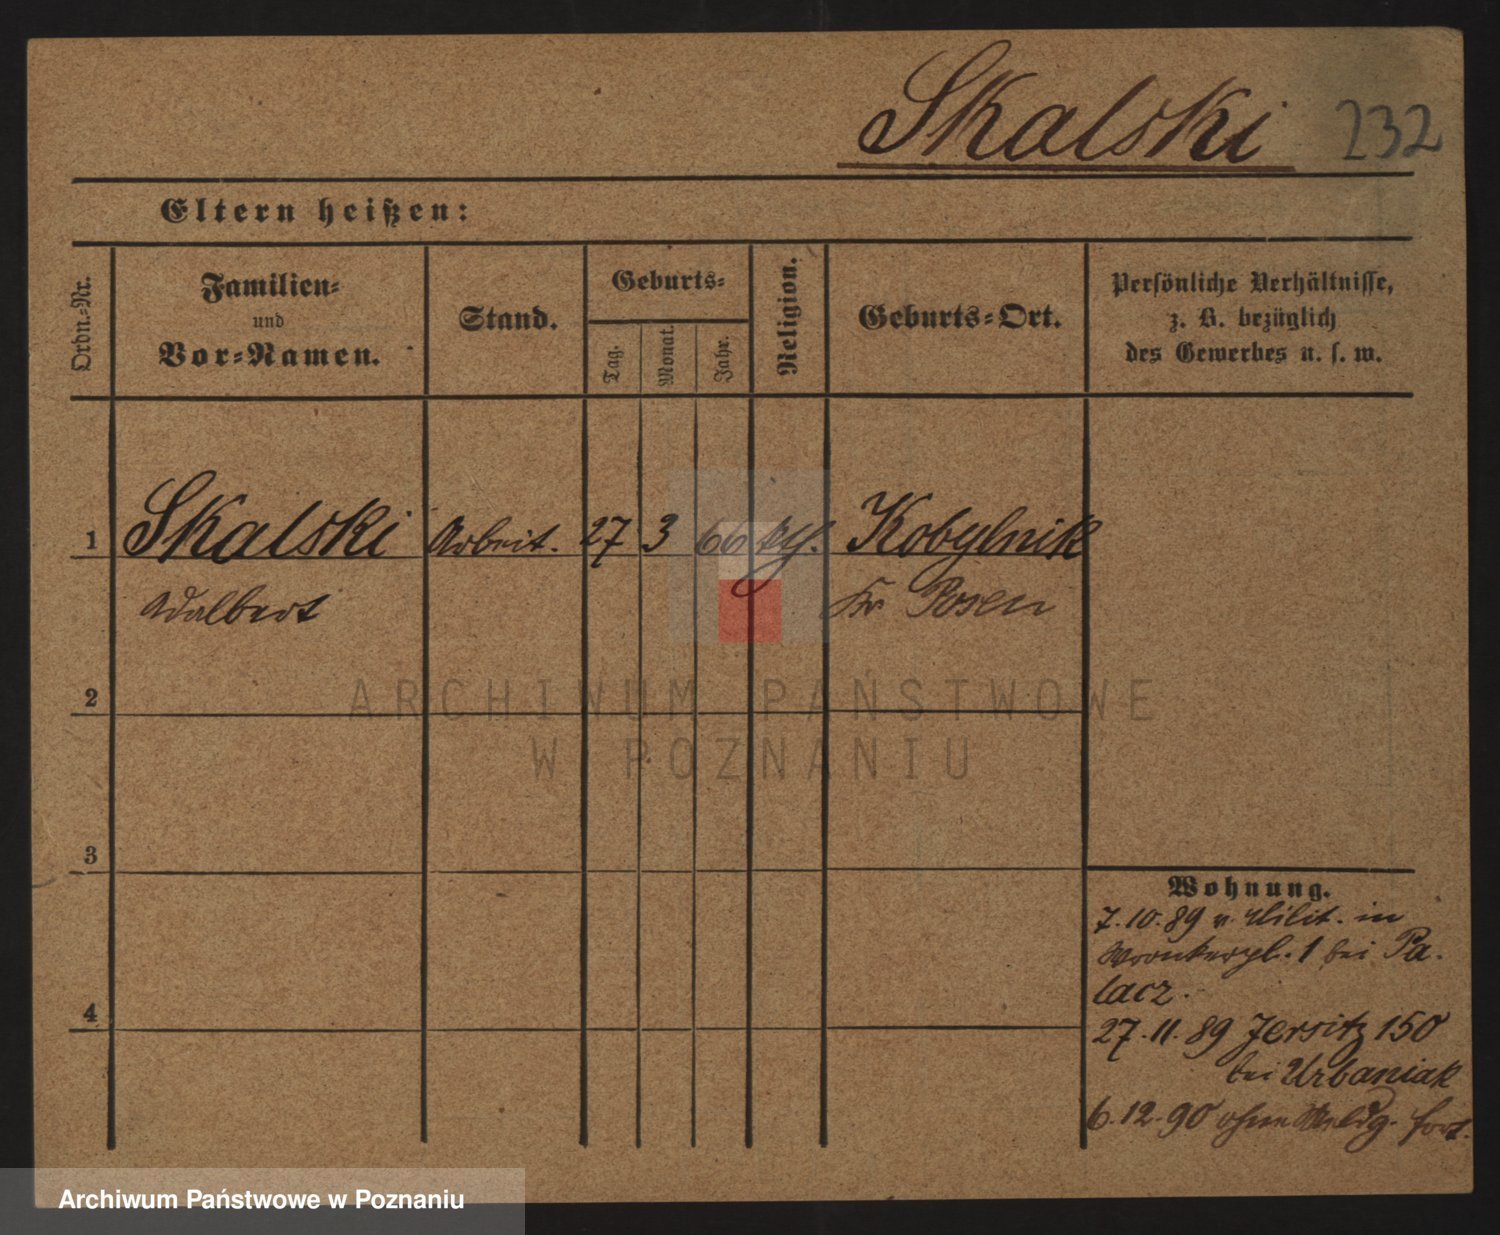 Skalski 232
Eltern heißen:
Ordn.-Nr.
Familien-
und
Vor-Namen.
Stand.
Geburts-
Tag.
Monat.
Jahr.
Religion.
Geburts-Ort.
Persönliche Verhältnisse,
z. B. bezüglich
des Gewerbes u. s. w.
1 Skalski Arbeit. 27 3 66 Kobylnik
Adalbert Kr Posen
2
3
4
Wohnung.
7.10.89 v. Milit. in
Wronkerpl. 1 bei Pa-
lacz.
27.11.89 Jersitz 150
bei Urbaniak
6.12.90 ohne Meldg. fort.
ARCHIWUM PAŃSTWOWE
W POZNANIU
Archiwum Państwowe w Poznaniu